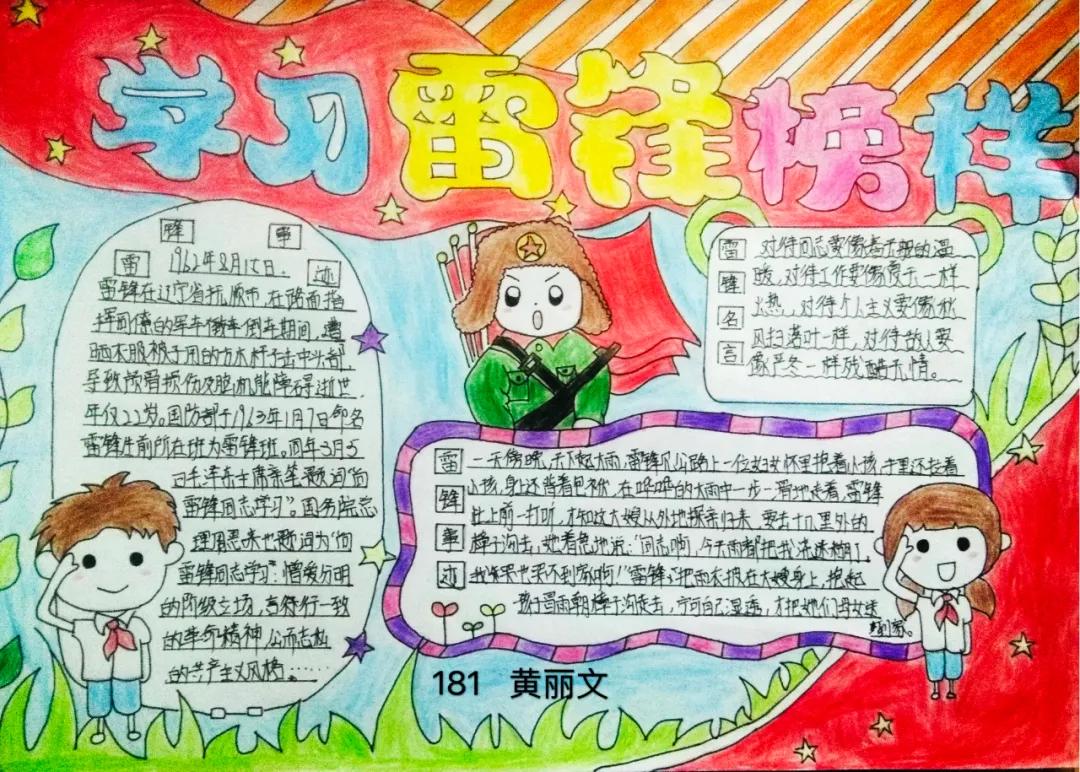 学习雷锋榜样
雷锋事迹
1962年8月15日,
雷锋在辽宁省抚顺市,在路面指
挥同僚的军车倒车期间,遭
晒衣服被子用的方木杆子击中头部,
导致颅骨损伤及脑机能障碍逝世,
年仅22岁。国防部于1963年1月7日命名
雷锋生前所在班为雷锋班。同年3月5
日毛泽东主席亲笔题词“向
雷锋同志学习”。国务院总
理周恩来也题词为“向
雷锋同志学习”:憎爱分明
的阶级立场,言行一致
的革命精神,公而忘私
的共产主义风格。……
雷锋名言
对待同志要像春天般的温
暖,对待工作要像夏天一样
火热,对待个人主义要像秋
风扫落叶一样,对待敌人要
像严冬一样残酷无情。
雷锋事迹
一天傍晚,天下起大雨,雷锋见公路上一位妇女怀里抱着小孩,手里还拉着
小孩,身上还背着包袱,在哗哗的大雨中一步一滑地走着,雷锋
赶上前一打听,才知这大嫂从外地探亲归来,要去十几里外的
樟子沟去,她着急地说:“同志啊,今天雨都把我浇迷糊了,
我哭也哭不到家啊!”雷锋把雨衣披在大嫂身上,抱起
孩子冒雨朝樟子沟走去,宁可自己湿透,才把她们母女送
到家。
181 黄丽文